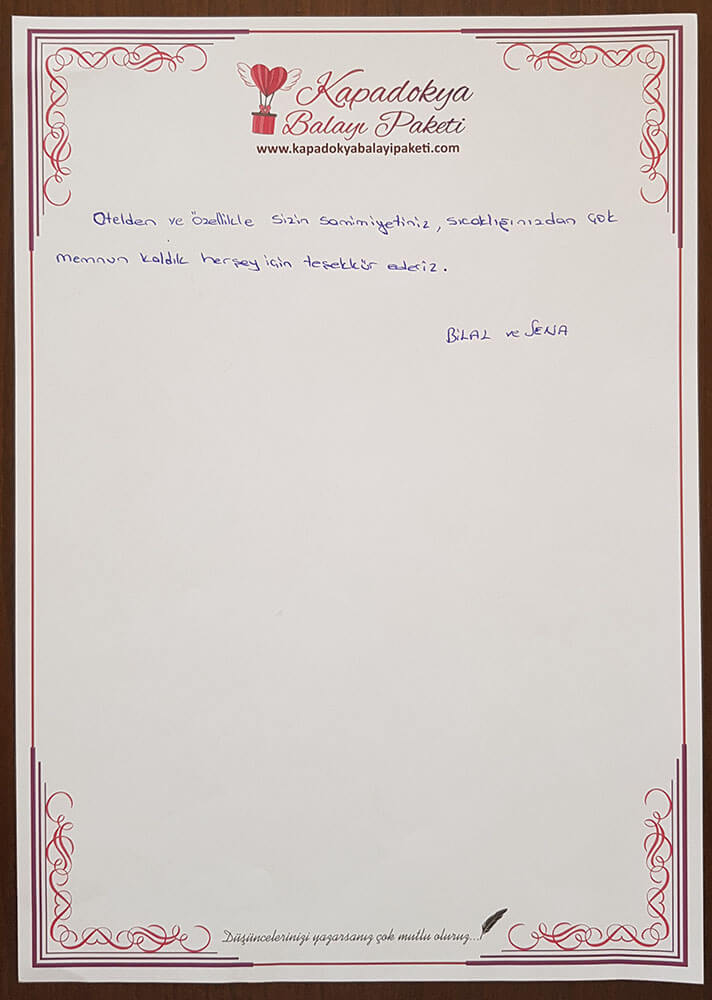 Kapadokya
Balayı Paketi
www.kapadokyabalayipaketi.com
Otelden ve özellikle sizin samimiyetiniz, sıcaklığınızdan çok
memnun kaldık herşey için teşekkür ederiz.
BİLAL ve SENA
Düşüncelerinizi yazarsanız çok mutlu oluruz...